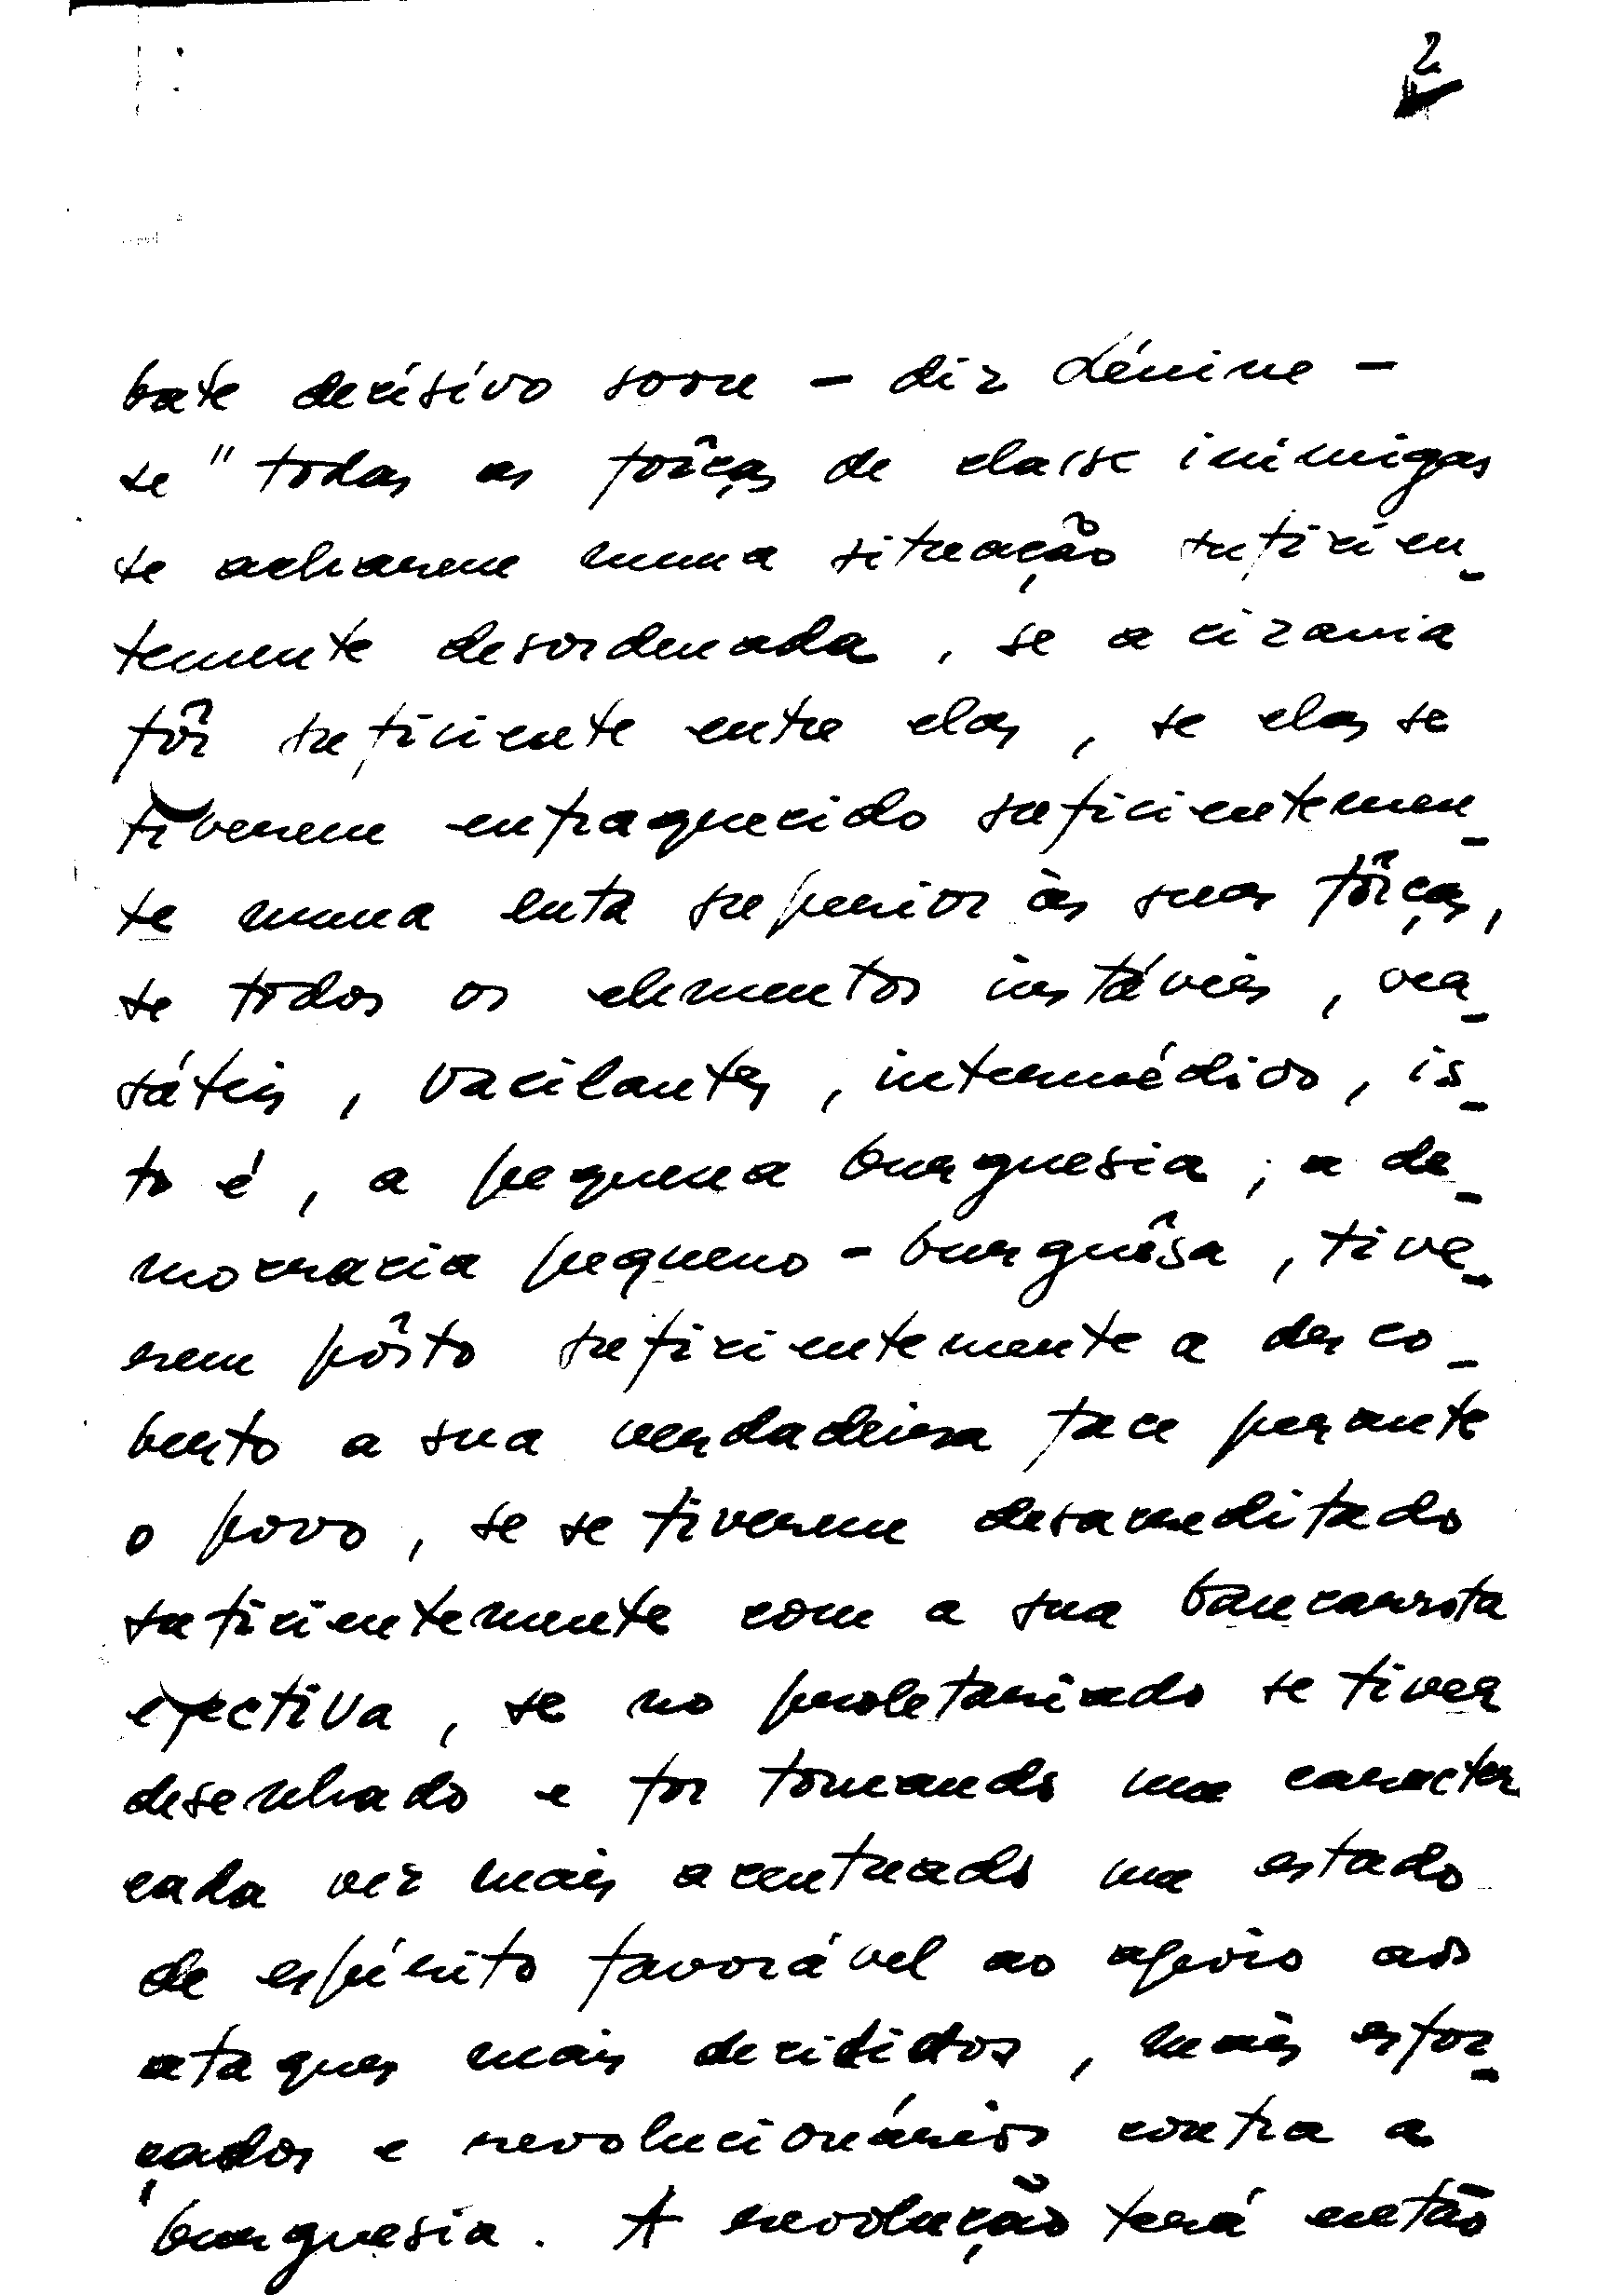 2
bate decisivo soou – diz Lénine –
se " todas as fôrças de classe inimigas
se acharem numa situação suficien-
temente desordenada, se a cizania
fôr suficiente entre elas, se elas se
tiverem enfraquecido suficientemen-
te numa luta superior às suas fôrças,
se todos os elementos instáveis, ver-
sáteis, vacilantes, intermédios, is-
to é, a pequena burguesia, a de-
mocracia pequeno-burguêsa, tive-
rem pôsto suficientemente a desco-
berto a sua verdadeira face perante
o povo, se se tiverem desacreditado
suficientemente com a sua bancarrota
efectiva, se no proletariado se tiver
desenhado e for tomando um caracter
cada vez mais acentuado um estado
de espírito favorável ao apoio aos
ataques mais decididos, mais esfor-
çados e revolucionários contra a
burguesia. A revolução terá então